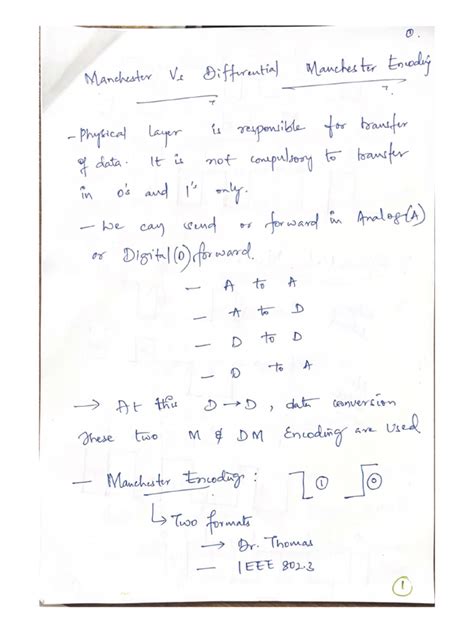 ①.
Manchester Vs Differential Manchester Encoding
- Physical layer is responsible for transfer
of data. It is not compulsory to transfer
in 0's and 1's only.
- We can send or forward in Analog(A)
or Digital(D) forward.
- A to A
- A to D
- D to D
- D to A
→ At this D→D, data conversion
these two M & DM Encoding are used
- Manchester Encoding : 1 0
↳ Two formats
→ Dr. Thomas
- IEEE 802.3
①